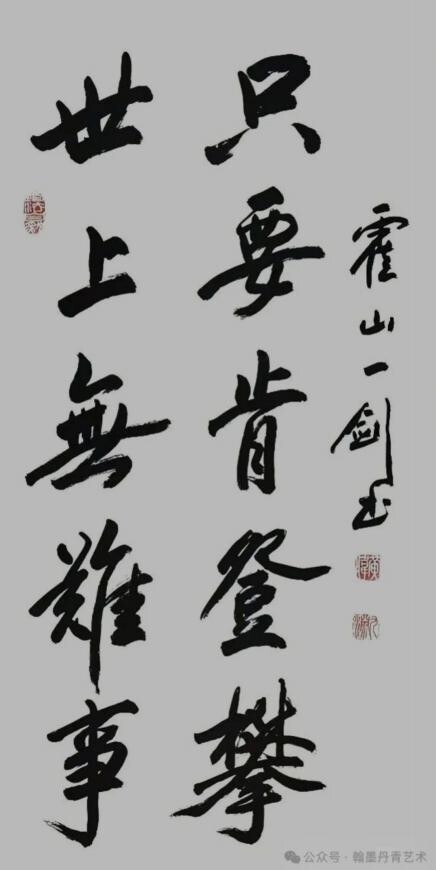 世上無難事
只要肯登攀
霍山一劍书
公众号·翰墨丹青艺术